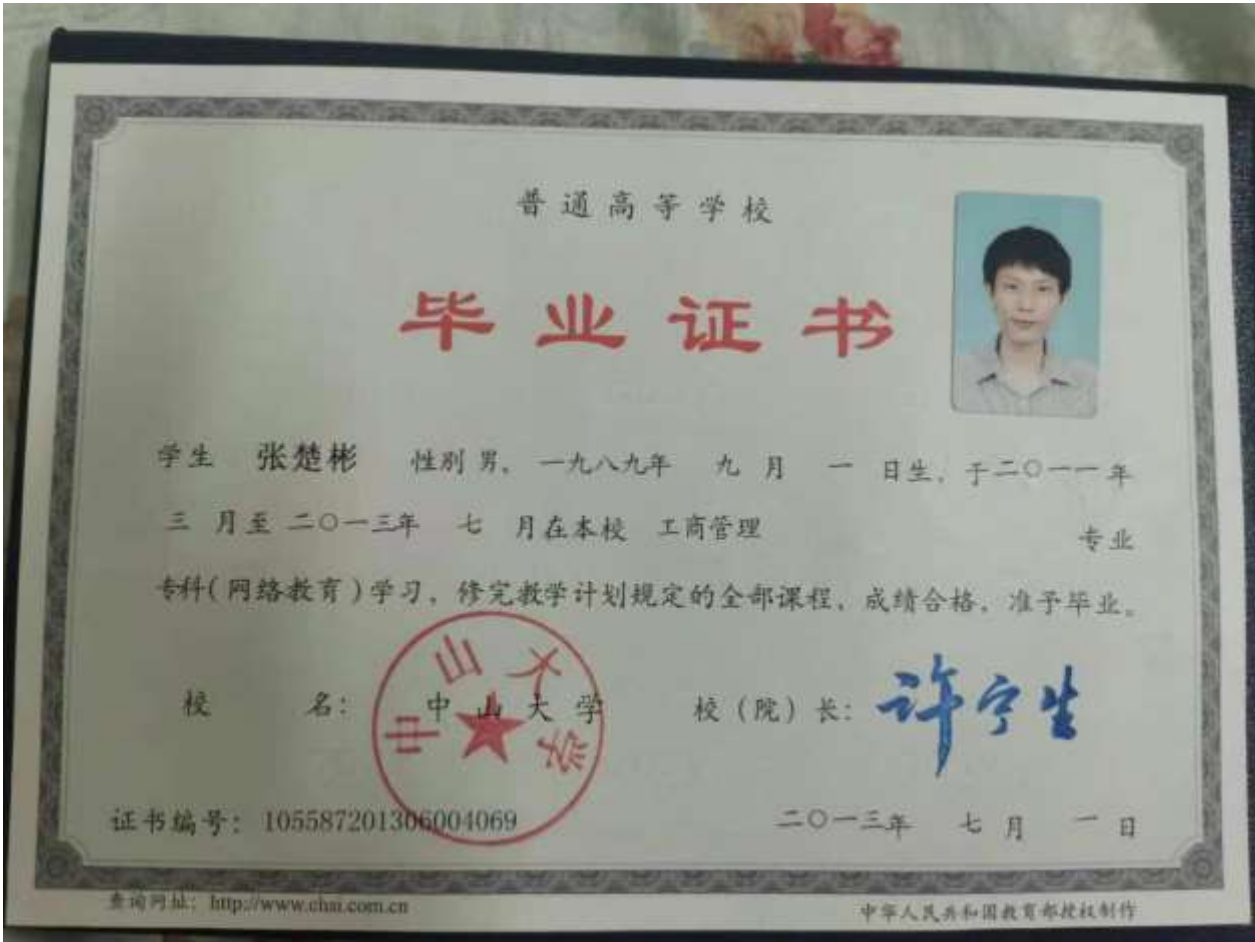 普通高等学校
毕业证书
学生 张楚彬 性别 男，一九八九年 九 月 一 日生，于二〇一一年
三 月至 二〇一三年 七 月在本校 工商管理 专业
专科（网络教育）学习，修完教学计划规定的全部课程，成绩合格，准予毕业。
校 名： 中山大学 校（院）长： 许宁生
中山大学
证书编号： 105587201306004069 二〇一三年 七 月 一 日
查询网址：http://www.chsi.com.cn 中华人民共和国教育部授权制作